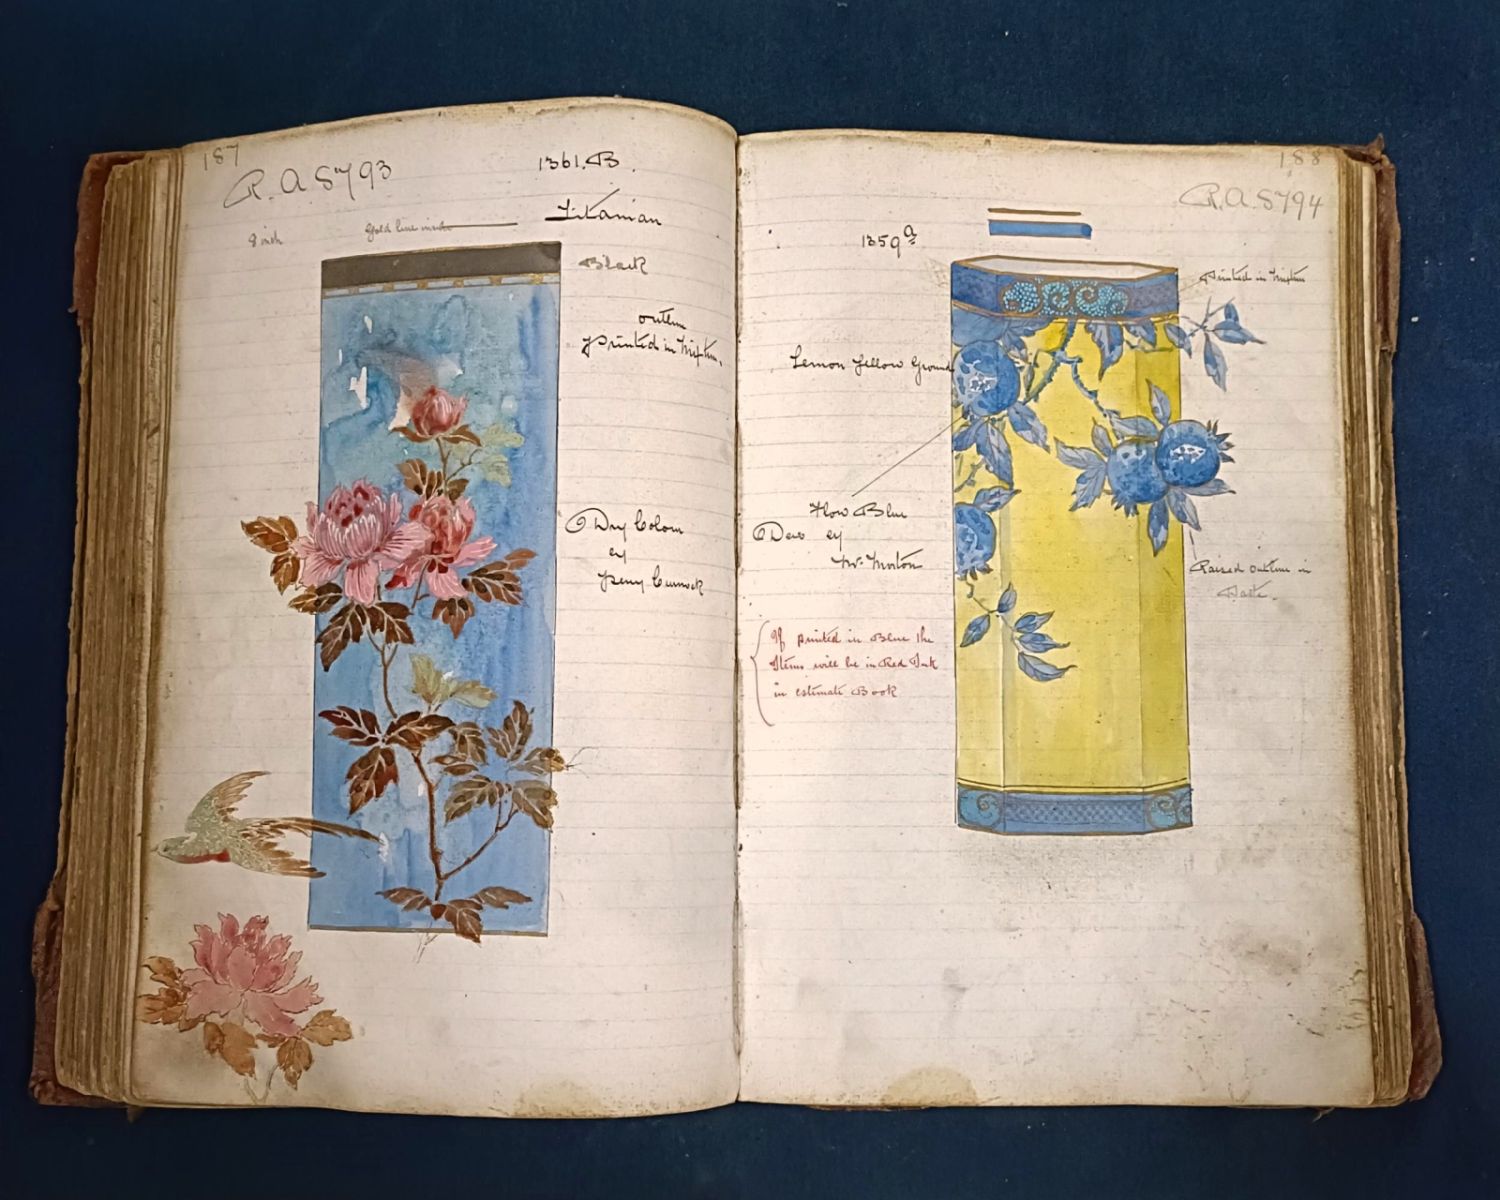 187
R.A. 8793
1361.B.
Titanian
8 inch
Gold line inside
Black
outline
printed in
Dry Colour
by
Percy Curnock
188
R.A. 8794
1359 a
Printed in
Lemon Yellow Ground
Flow Blue
Dec by
Mr. Morton
Raised outline in
Paste.
If printed in Blue the
Items will be in Red Ink
in estimate Book